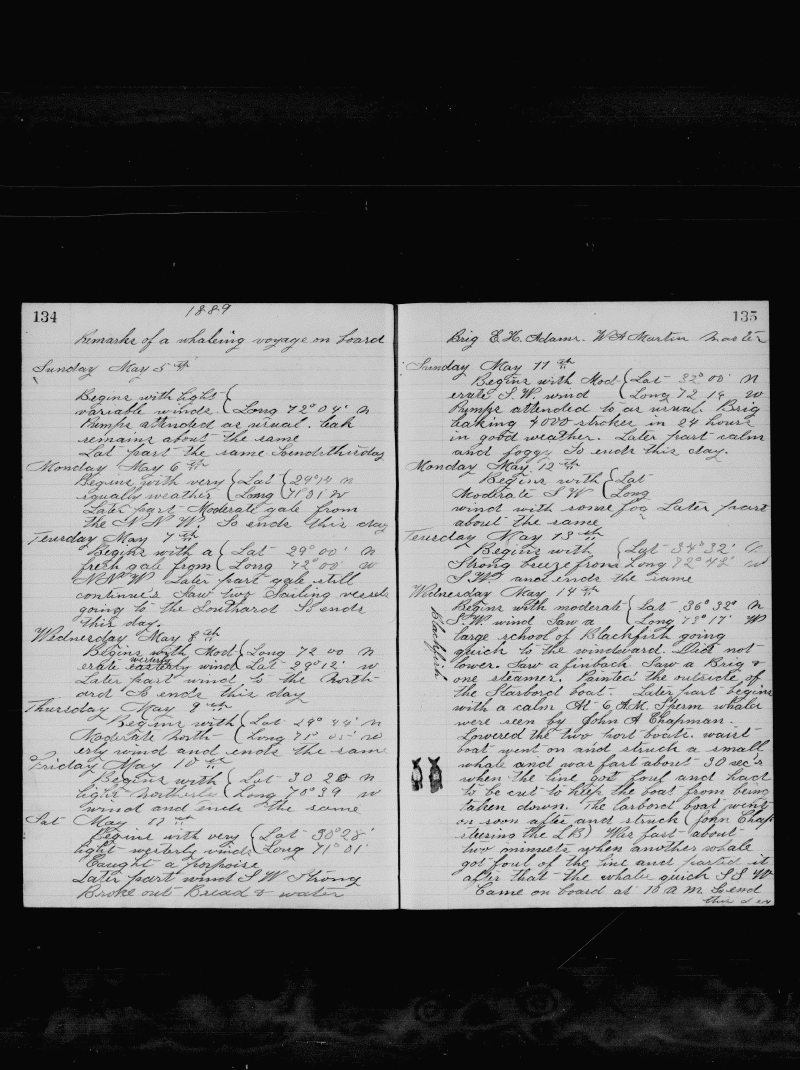 134
1889
Remarks of a whaleing voyage on board
Sunday May 5th
Begins with light
variable winds. Long 72° 04' N
Pumps attended as usual. leak
remains about the same
Lat part the same So ends this day
Monday May 6th
Begins with very Lat 29° 14 N
squally weather Long 71° 01' W
Later part Moderate gale from
the N N W. So ends this day
Teusday May 7th
Begins with a Lat 29° 00' N
fresh gale from Long 72° 00' W
N.N.W Later part gale still
continue's Saw two Sailing vessels
going to the Southard So ends
this day.
Wednesday May 8th
Begins with Mod Long 72 00 N
westerly
erate easterly wind Lat 29° 12' W
Later part wind to the North-
ard So ends this day
Thursday May 9th
Begins with Lat 29° 44' N
Moderate North- Long 71° 05' W
erly wind and ends the same
Friday May 10th
Begins with Lat 30 20 N
light northerly Long 70° 39 W
wind and ends the same
Sat May 11th
Begins with very Lat 30° 28'
light westerly winds Long 71° 01'
Caught a porpoise
Later part wind S W Strong
Broke out Bread & water
135
Brig E. H. Adams. W A Martin Master
Sunday May 11th
Begins with Mod- Lat 32° 00' N
erate S.W. wind Long 72 14 W
Pumps attended to as usual. Brig
leaking 4000 strokes in 24 hours
in good weather. Later part calm
and foggy So ends this day.
Monday May 12th
Begins with Lat
Moderate S W Long
wind with some fog Later part
about the same
Teusday May 13th
Begins with Lat 34° 32'
Strong breeze from Long 72° 48'
S W and ends the same
Wednesday May 14th
Begins with moderate Lat 36° 32' N
S. W wind Saw a Long 73° 17' W
large school of Blackfish going
quick to the windward. Did not
lower. Saw a finback Saw a Brig &
one steamer. Painted the outside of
the Starbord boat. Later part begins
with a calm At 6 A.M. Sperm whales
were seen by John A Chapman.
Lowered the two port boats. waist
boat went on and struck a small
whale and was fast about 30 sec's
when the line got fouf and had
to be cut to keep the boat from being
taken down. The larbord boat went
on soon after and struck (John Chap
steering the L B) Was fast about
two minnets when another whale
got foul of the line and parted it
after that the whales quick S S W
Came on board at 10 A M. So end
this day
Blackfish